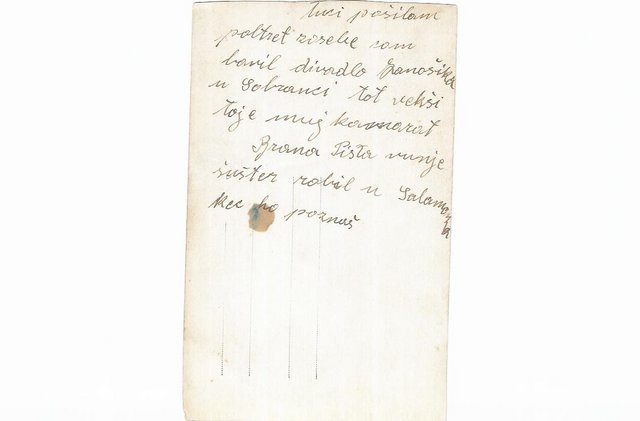 tuci pošilam
poltret zosebe som
bavil divadlo Janošika
u Sobranci tot vekši
toje muj kamarat
Brana Pišta vunje
šušter robil u Salamona
kec ho poznaš